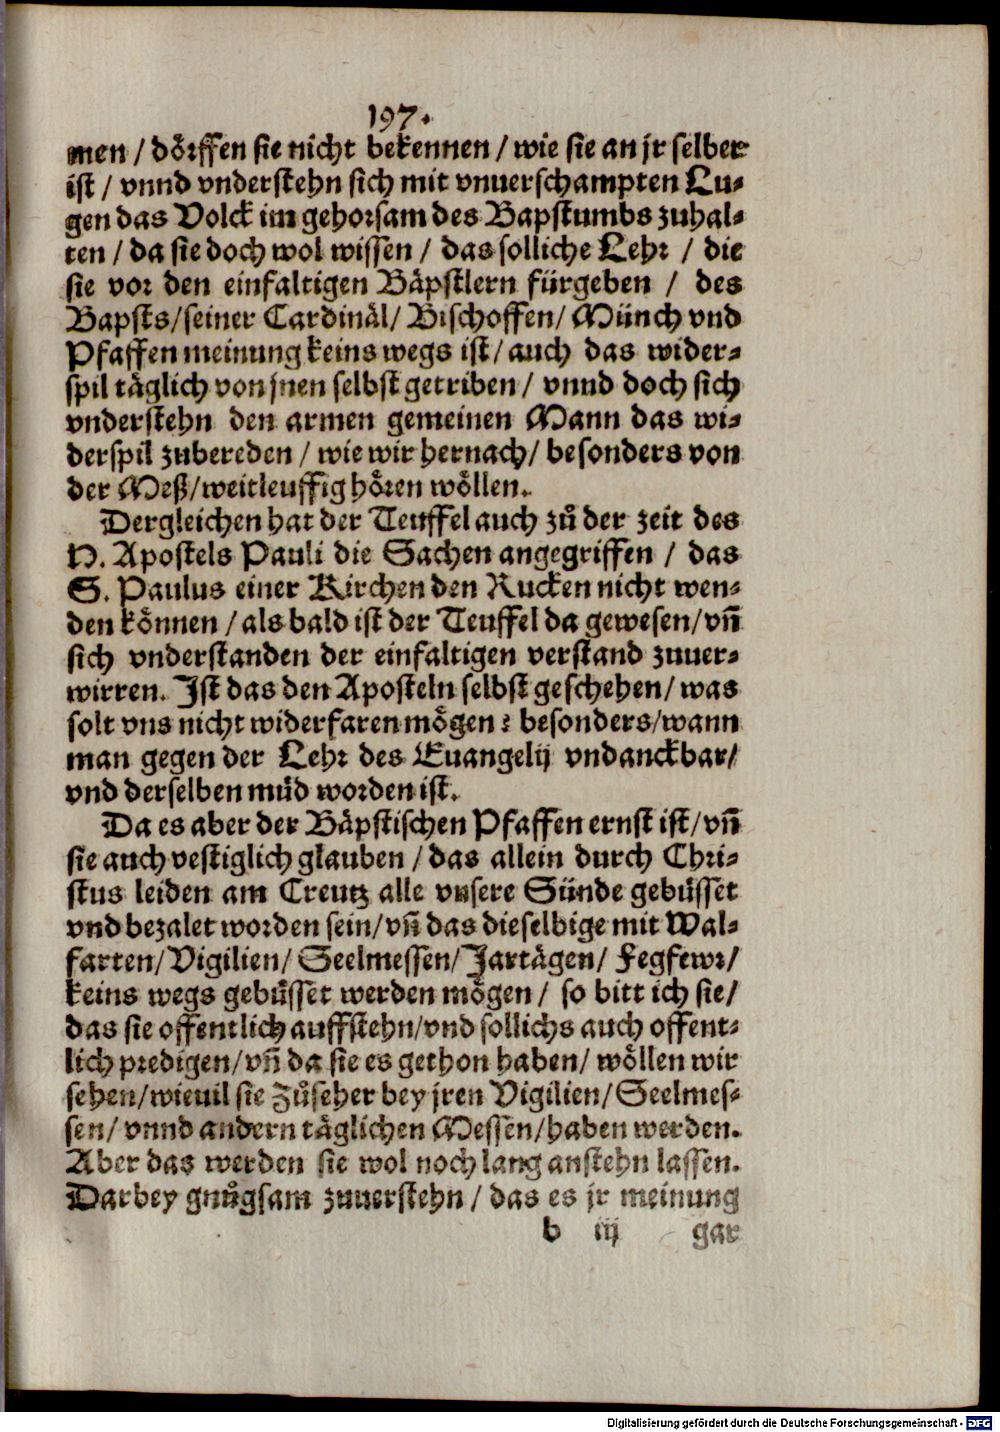 197.
men / dörffen sie nicht bekennen / wie sie an jr selber
ist / vnnd vnderstehn sich mit vnuerschampten Lu-
gen das Volck im gehorsam des Bapstumbs zuhal-
ten / da sie doch wol wissen / das solliche Lehr / die
sie vor den einfaltigen Bäpstlern fürgeben / des
Bapsts/seiner Cardinäl/ Bischoffen/ Münch vnd
Pfaffen meinung keins wegs ist/ auch das wider-
spil täglich von jnen selbst getriben/ vnnd doch sich
vnderstehn den armen gemeinen Mann das wi-
derspil zubereden / wie wir hernach/ besonders von
der Meß/weitleuffig hören wöllen.
Dergleichen hat der Teuffel auch zů der zeit des
H. Apostels Pauli die Sachen angegriffen / das
S. Paulus einer Kirchen den Rucken nicht wen-
den können / als bald ist der Teuffel da gewesen/vñ
sich vnderstanden der einfaltigen verstand zuuer-
wirren. Ist das den Aposteln selbst geschehen/ was
solt vns nicht widerfaren mögen? besonders/wann
man gegen der Lehr des Euangelij vndanckbar/
vnd derselben müd worden ist.
Da es aber der Bäpstischen Pfaffen ernst ist/vñ
sie auch vestiglich glauben / das allein durch Chri-
stus leiden am Creutz alle vnsere Sünde gebüsset
vnd bezalet worden sein/vñ das dieselbige mit Wal-
farten/ Vigilien/ Seelmessen/ Jartägen/ Fegfewr/
keins wegs gebüsset werden mögen / so bitt ich sie/
das sie offentlich auffstehn/vnd sollichs auch offent-
lich predigen/vñ da sie es gethon haben/ wöllen wir
sehen/wieuil sie Zůseher bey jren Vigilien/ Seelmes-
sen/ vnnd andern täglichen Messen/haben werden.
Aber das werden sie wol noch lang anstehn lassen.
Darbey gnůgsam zuuerstehn / das es jr meinung
b iij gar
Digitalisierung gefördert durch die Deutsche Forschungsgemeinschaft - DFG